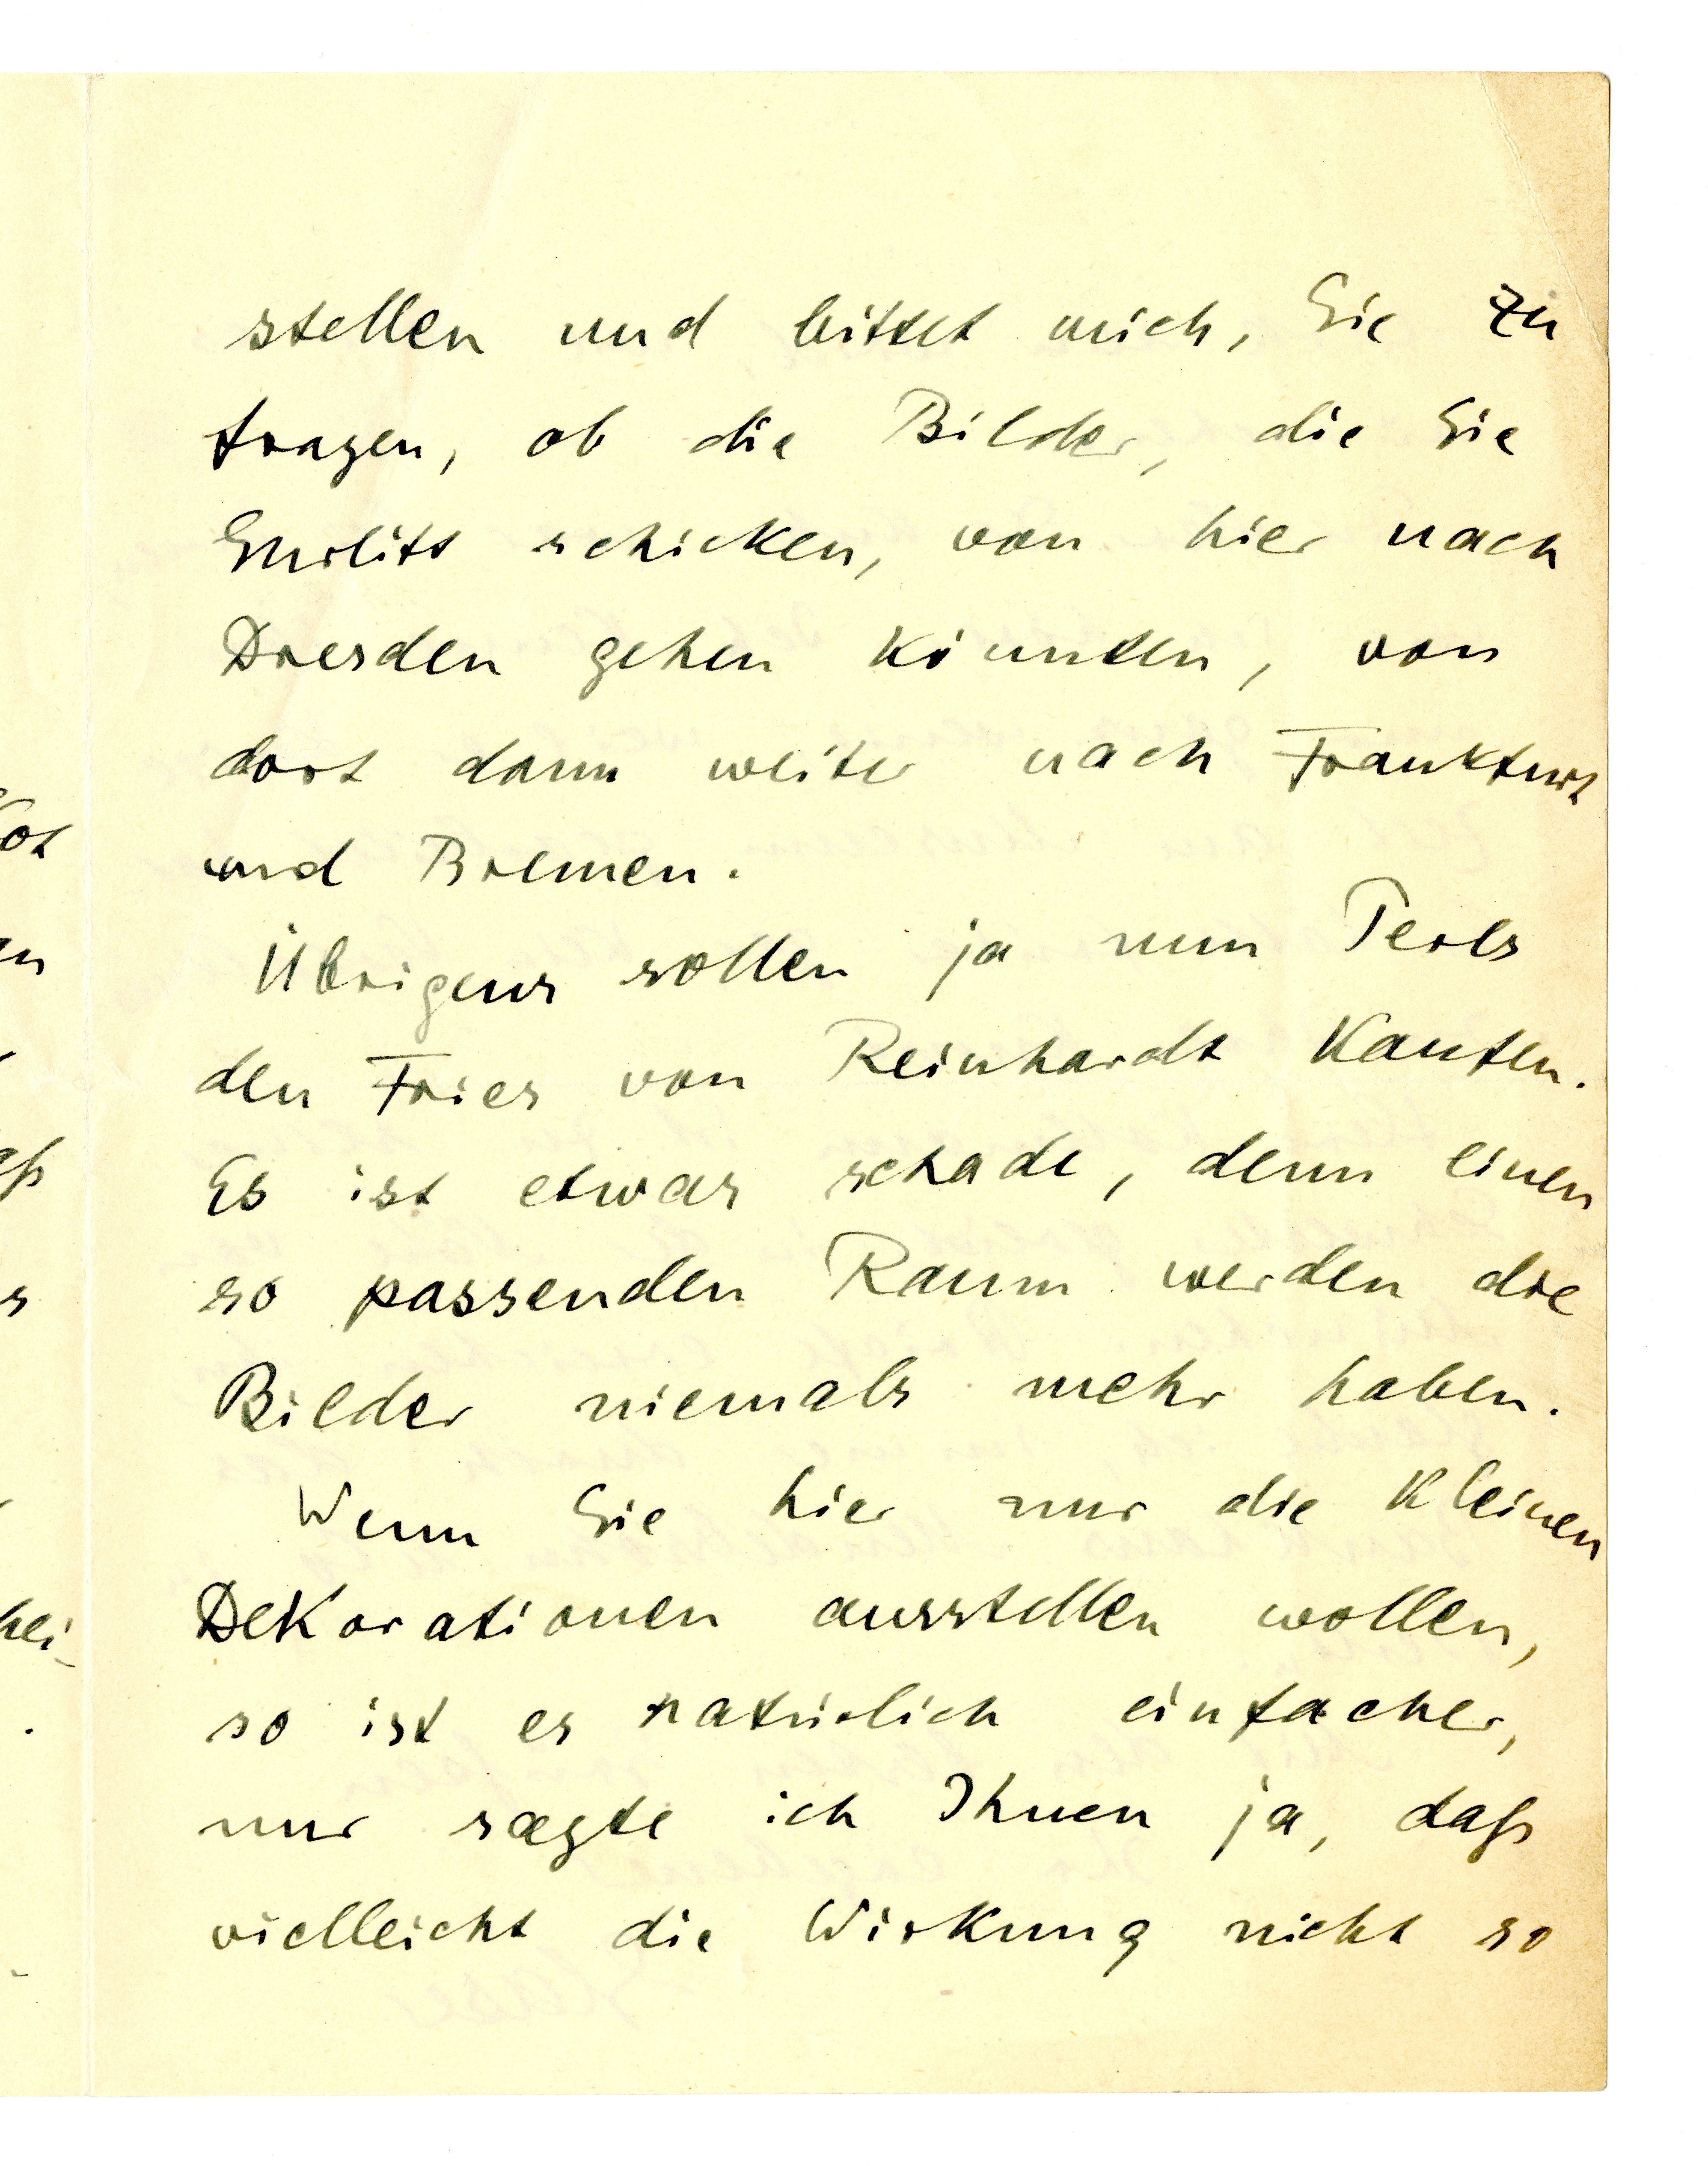 stellen und bittet mich, Sie zu
fragen, ob die Bilder, die Sie
Gurlitt schicken, von hier nach
Dresden gehen könnten, von
dort dann weiter nach Frankfurt
und Bremen.
Übrigens sollen ja nun Perls
den Fries von Reinhardt kaufen.
Es ist etwas schade, denn einen
so passenden Raum werden die
Bilder niemals mehr haben.
Wenn Sie hier nur die kleinen
Dekorationen ausstellen wollen,
so ist es natürlich einfacher,
nur sagte ich Ihnen ja, daß
vielleicht die Wirkung nicht so